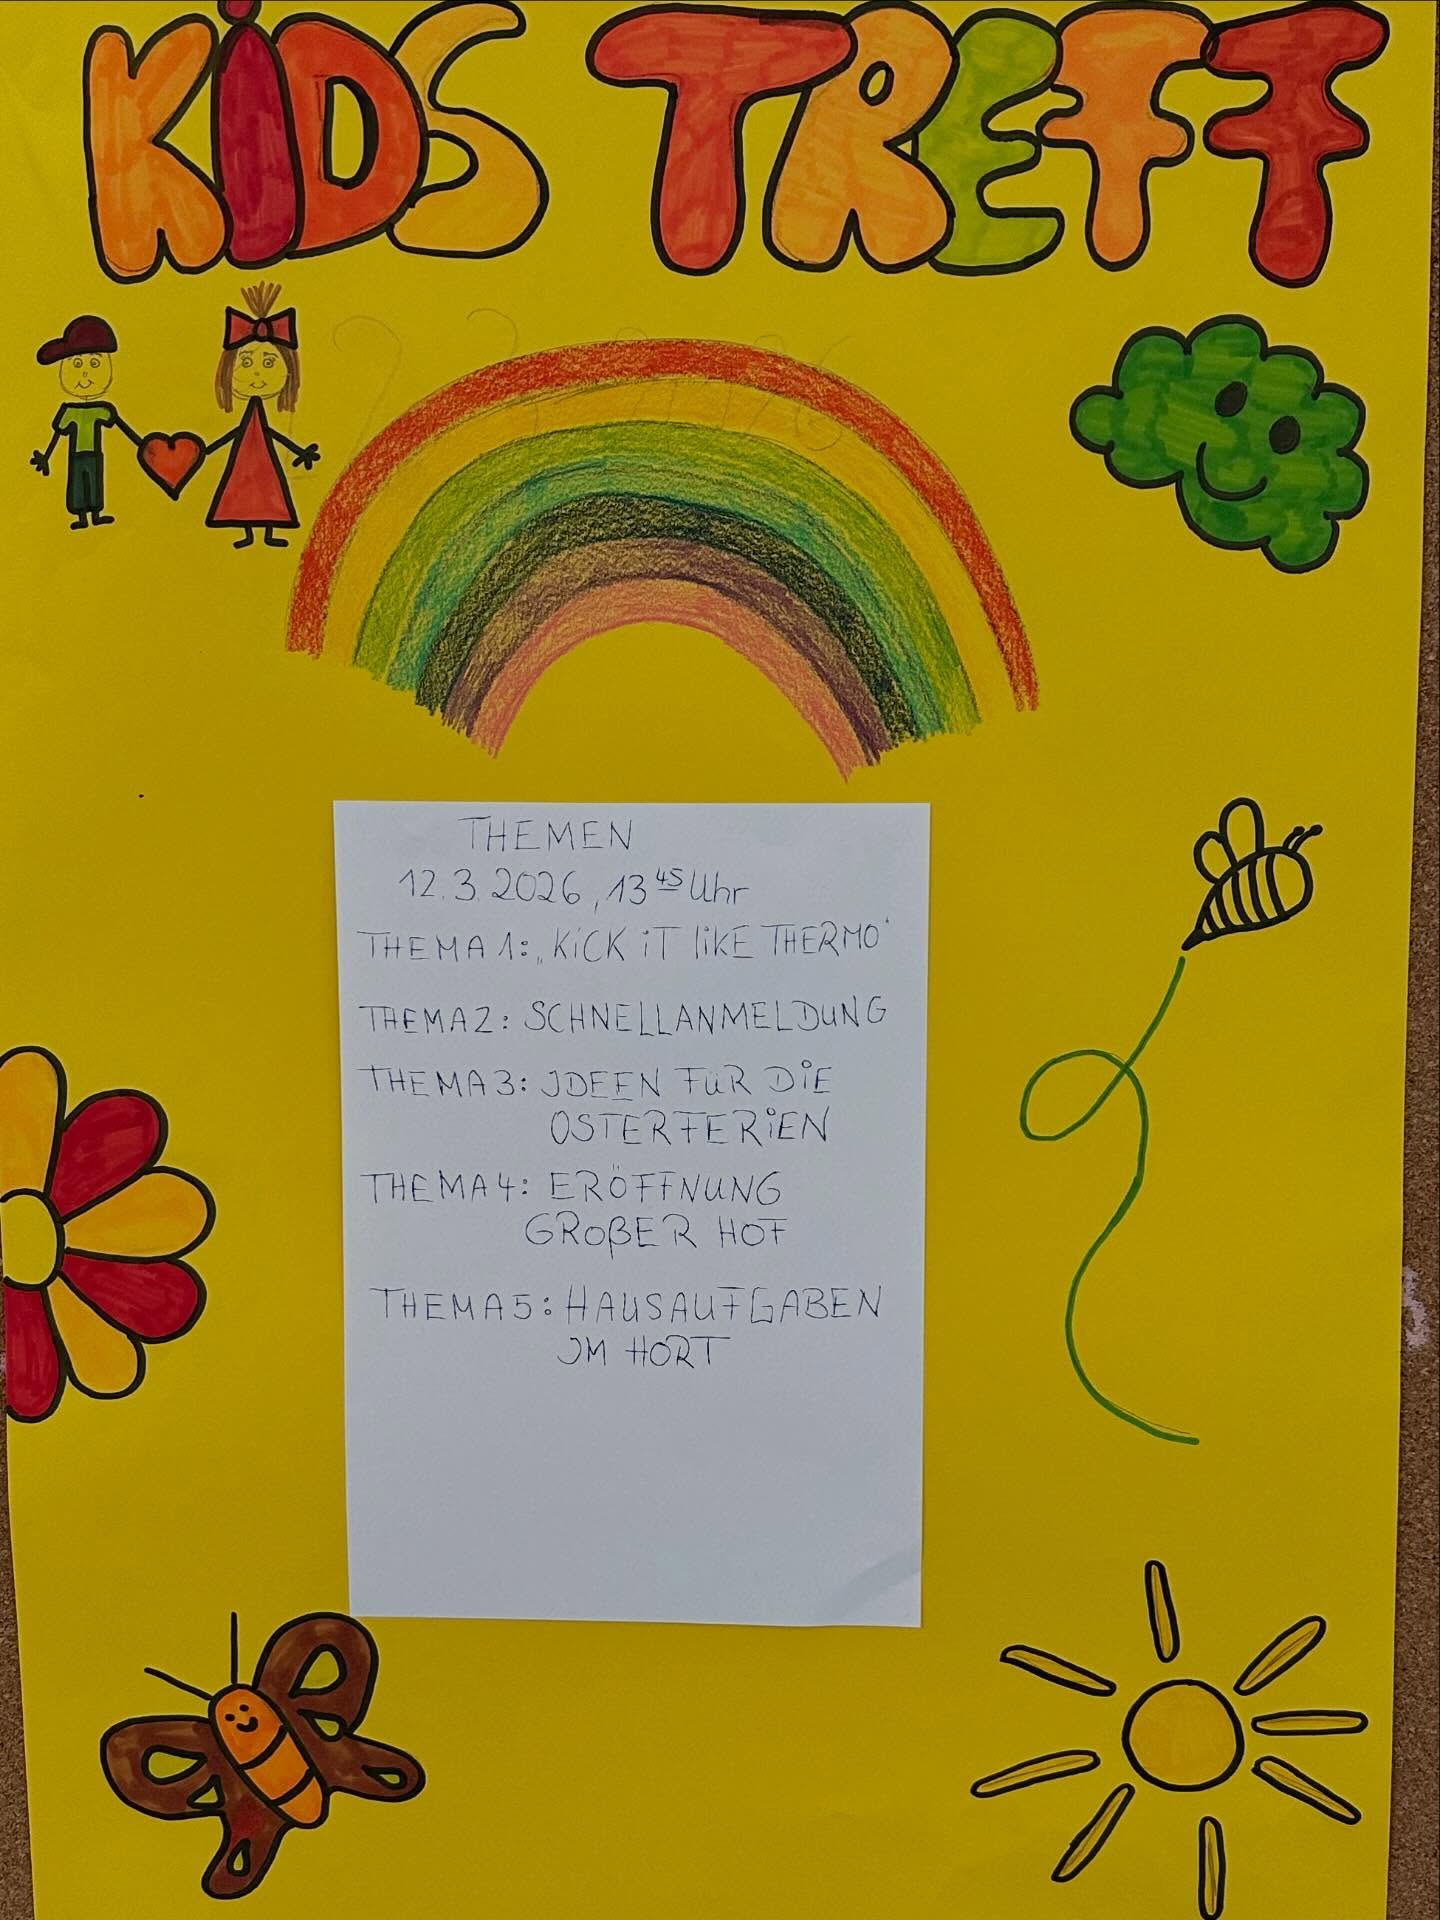 KiDS TREFF
THEMEN
12.3.2026, 13 45 Uhr
THEMA 1: „KiCK iT liKE THERMO‘
THEMA 2: SCHNELLANMELDUNG
THEMA 3: JDEEN FüR DiE
OSTERFERiEN
THEMA 4: ERÖFFNUNG
GROßER HOF
THEMA 5: HAUSAUFGABEN
JM HORT